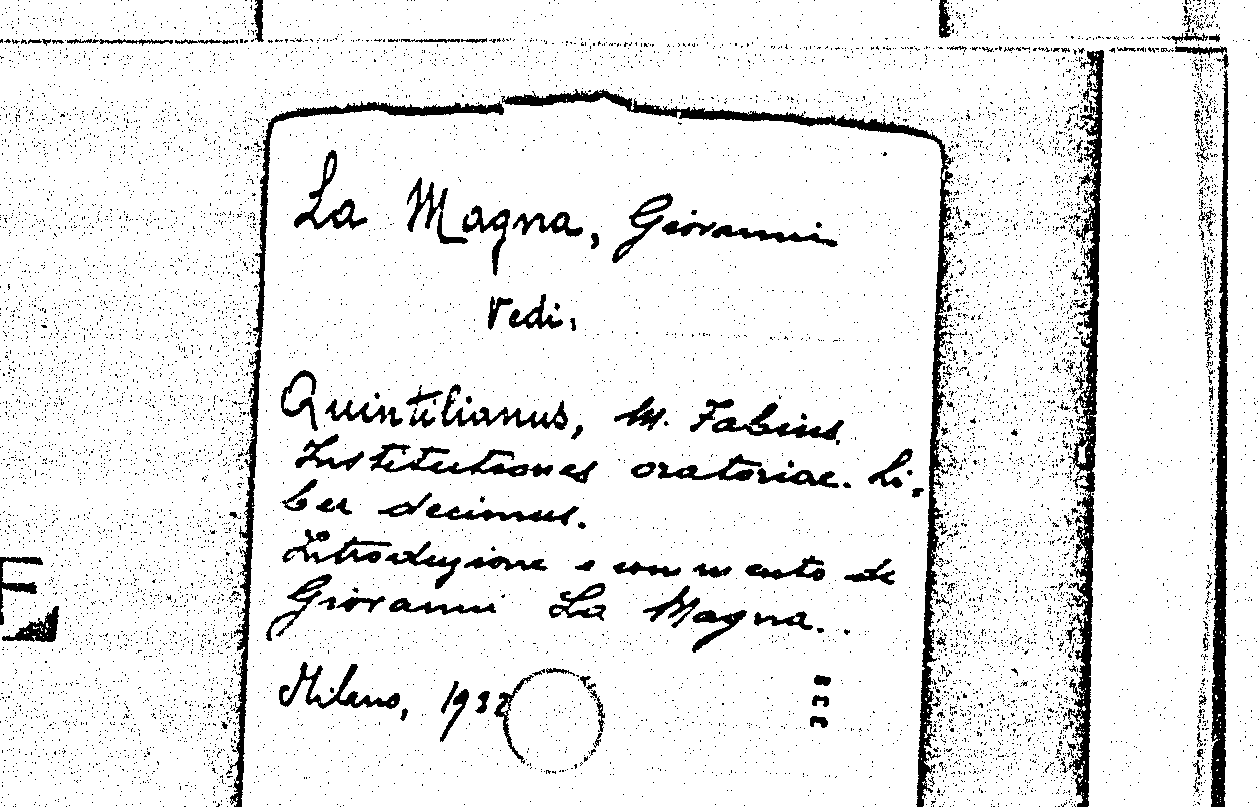 La Magna, Giovanni
Vedi,
Quintilianus, M. Fabius.
Institutiones oratoriae. Li-
ber decimus.
Introduzione e commento de
Giovanni La Magna.
Milano, 1932